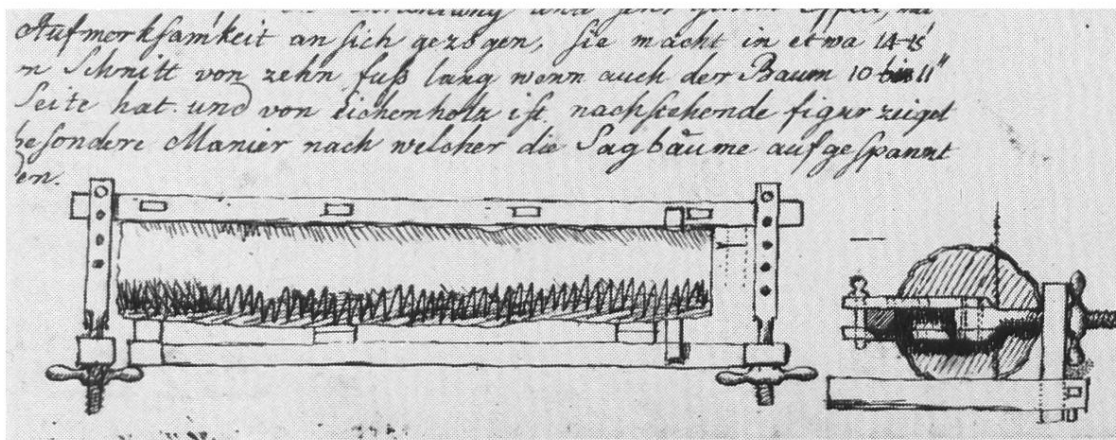 und sehr guten Effect, die
Aufmerksamkeit an sich gezogen, sie macht in etwa 14-15'
n Schnitt von zehn fuß lang wenn auch der Baum 10 bis 11"
Seite hat und von Eichenholz ist. nachstehende figur zeiget
besondere Manier nach welcher die Sagbäume aufgespannt
en.